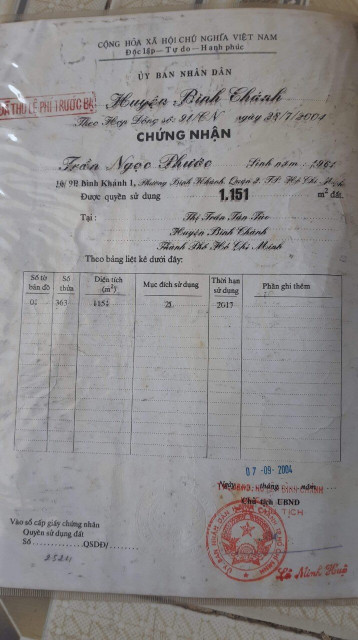 CỘNG HÒA XÃ HỘI CHỦ NGHĨA VIỆT NAM
Độc lập - Tự do - Hạnh phúc
ỦY BAN NHÂN DÂN
ĐÃ THU LỆ PHÍ TRƯỚC BẠ
Huyện Bình Chánh
Theo Hợp Đồng số: 91/CN ngày 28/7/2004
CHỨNG NHẬN
Trần Ngọc Phước Sinh năm: 1962
Bình Khánh 1, Phường Bình Khánh Quận 2, TP. Hồ Chí Minh
Được quyền sử dụng 1.151 m² đất.
Tại: Thị Trấn Tân Túc
Huyện Bình Chánh
Thành Phố Hồ Chí Minh
Theo bảng liệt kê dưới đây:
Số tờ bản đồ Số thửa Diện tích (m²) Mục đích sử dụng Thời hạn sử dụng Phần ghi thêm
363 1151 2017
07-09-2004
Ngày tháng năm
Chủ tịch UBND
CHỦ TỊCH
Vào sổ cấp giấy chứng nhận
Quyền sử dụng đất
Số QSDĐ/
Lê Minh Huệ